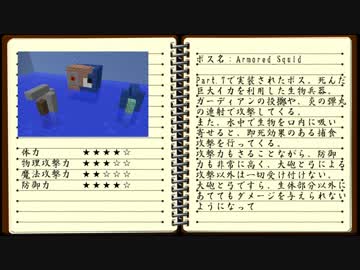 体力 ★★★★☆
物理攻撃力 ★★★★☆
魔法攻撃力 ★★☆☆☆
防御力 ★★★★☆
ボス名：Armored Squid
Part.7で実装されたボス。死んだ
巨大イカを利用した生物兵器。
ガーディアンの投擲や、炎の弾丸
の連射で攻撃してくる。
また、水中で生物を口内に吸い
寄せると、即死効果のある捕食
攻撃を行ってくる。
攻撃力もさることながら、防御
力も非常に高く、大砲と弓による
攻撃以外は一切受け付けない。
大砲と弓ですら、生体部分以外に
あててもダメージを与えられな
いようになって